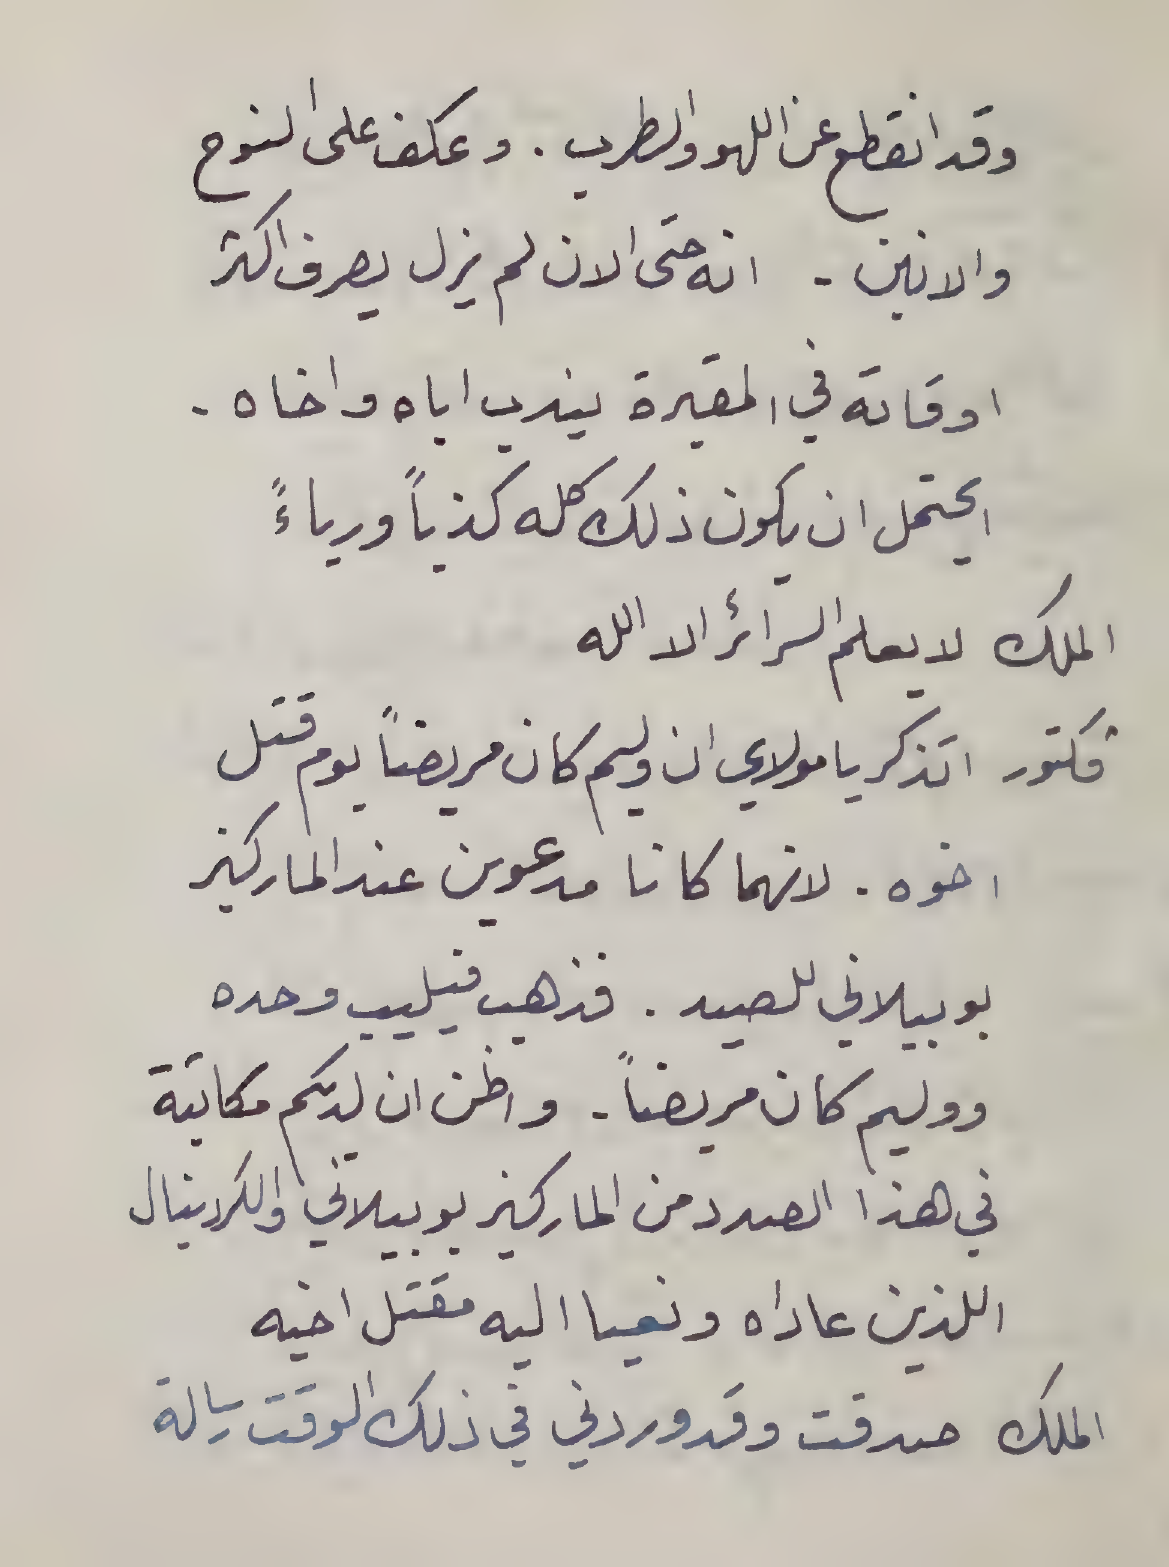 وقد انقطع عن اللهو والطرب . وعكف على النوح
والانين - انه حتى الان لم يزل يصرف اكثر
اوقاته في المقبرة يندب اباه واخاه -
ايحتمل ان يكون ذلك كله كذباً ورياءً
الملك لا يعلم السرائر الا الله
ڤكتور اتذكر يا مولاي ان وليم كان مريضاً يوم قتل
اخوه . لانهما كانا مدعوين عند الماركيز
بوبيلاني للصيد . فذهب فيليب وحده
ووليم كان مريضاً - واظن ان لديكم مكاتبة
في هذا الصدد من الماركيز بوبيلاني والكردينال
اللذين عاداه ونعيا اليه مقتل اخيه
الملك صدقت وقد وردني في ذلك الوقت رسالة